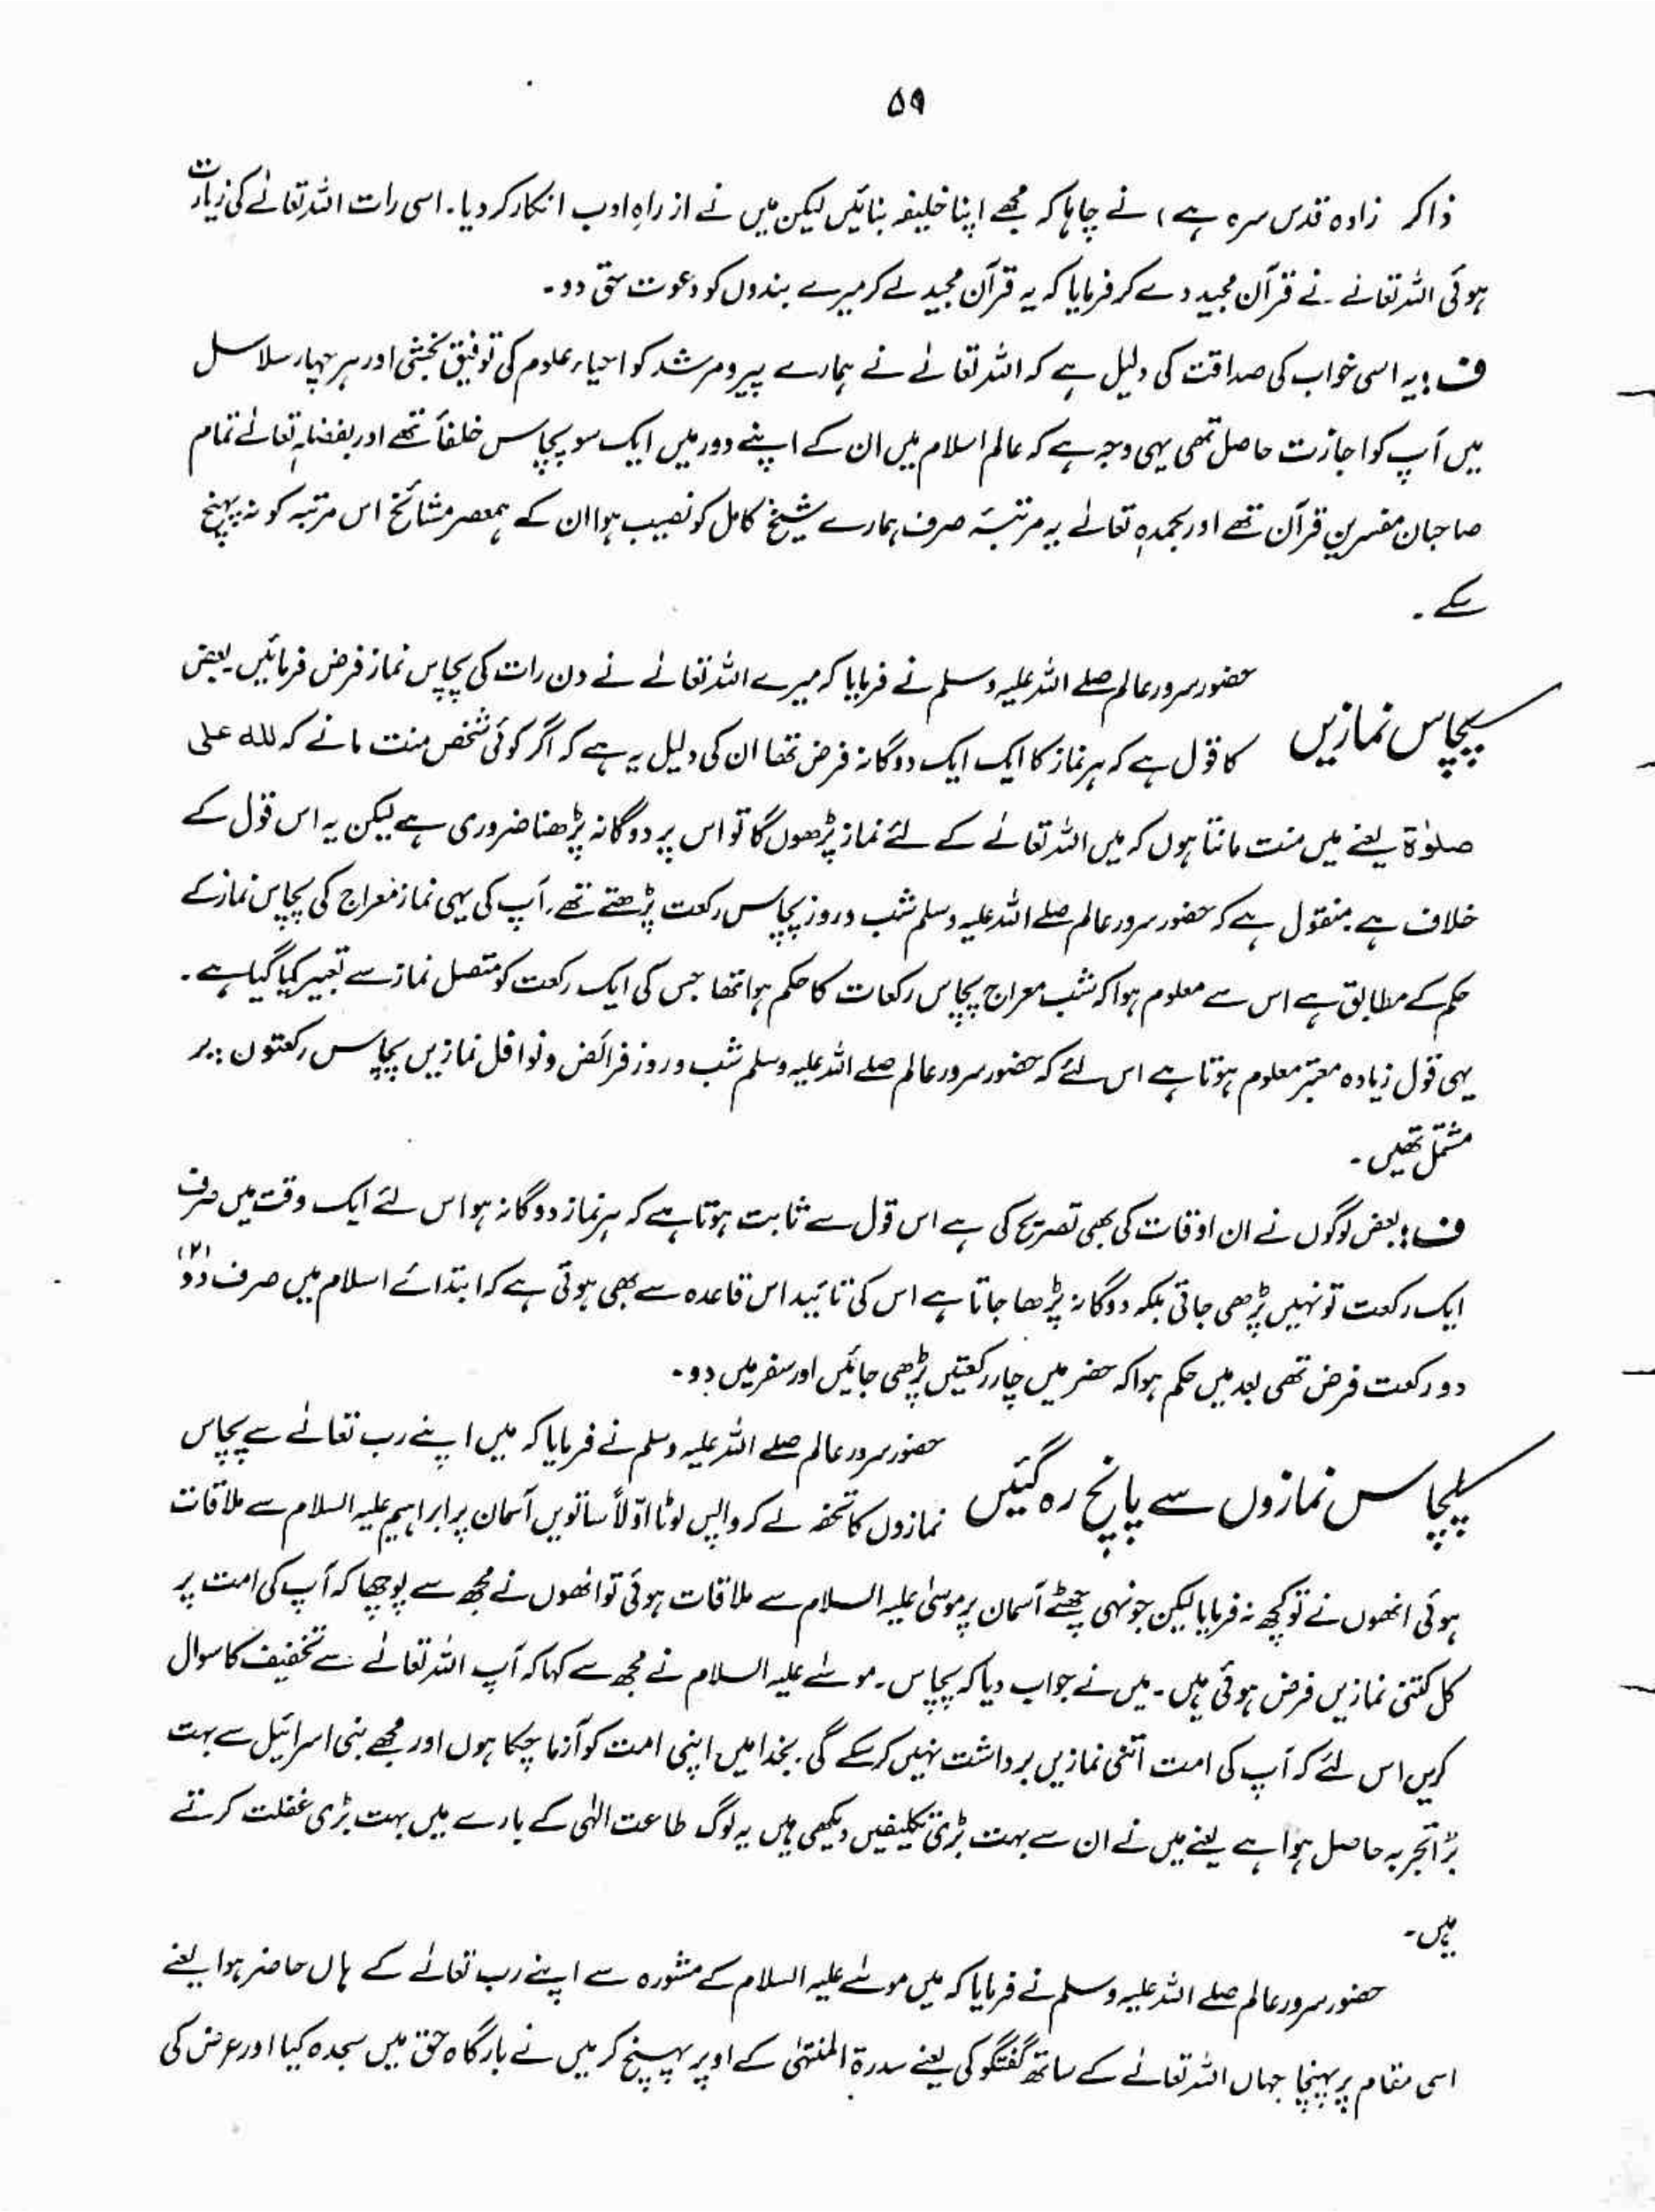 ۵۹
ذاکر زادہ قدس سرہ ہے) نے چاہا کہ مجھے اپنا خلیفہ بنائیں لیکن میں نے از راہِ ادب انکار کر دیا۔ اسی رات اللہ تعالےٰ کی زیارت
ہوئی اللہ تعالےٰ نے قرآن مجید دے کر فرمایا کہ یہ قرآن مجید لے کر میرے بندوں کو دعوت حق دو۔
ف: یہ اسی خواب کی صداقت کی دلیل ہے کہ اللہ تعالےٰ نے ہمارے پیر و مرشد کو احیاء علوم کی توفیق بخشی اور ہر چہار سلاسل
میں آپ کو اجازت حاصل تھی یہی وجہ ہے کہ عالم اسلام میں ان کے اپنے دور میں ایک سو پچاس خلفأ تھے اور بفضلہٖ تعالےٰ تمام
صاحبان مفسرین قرآن تھے اور بحمدہٖ تعالےٰ یہ مرتبہ صرف ہمارے شیخ کامل کو نصیب ہوا ان کے ہمعصر مشائخ اس مرتبہ کو نہ پہنچ
سکے۔
پچاس نمازیں
حضور سرور عالم صلے اللہ علیہ وسلم نے فرمایا کہ میرے اللہ تعالےٰ نے دن رات کی پچاس نماز فرض فرمائیں۔ بعض
کا قول ہے کہ ہر نماز کا ایک ایک دوگانہ فرض تھا ان کی دلیل یہ ہے کہ اگر کوئی شخص منت مانے کہ للہ علی
صلوٰۃ یعنے میں منت مانتا ہوں کہ میں اللہ تعالےٰ کے لئے نماز پڑھوں گا تو اس پر دوگانہ پڑھنا ضروری ہے لیکن یہ اس قول کے
خلاف ہے۔ منقول ہے کہ حضور سرور عالم صلے اللہ علیہ وسلم شب و روز پچاس رکعت پڑھتے تھے، آپ کی یہی نماز معراج کی پچاس نماز کے
حکم کے مطابق ہے اس سے معلوم ہوا کہ شب معراج پچاس رکعات کا حکم ہوا تھا جس کی ایک رکعت کو متصل نماز سے تعبیر کیا گیا ہے۔
یہی قول زیادہ معتبر معلوم ہوتا ہے اس لئے کہ حضور سرور عالم صلے اللہ علیہ وسلم شب و روز فرائض و نوافل نمازیں پچاس رکعتوں پر
مشتمل تھیں۔
ف: بعض لوگوں نے ان اوقات کی بھی تصریح کی ہے اس قول سے ثابت ہوتا ہے کہ ہر نماز دوگانہ ہو اس لئے ایک وقت میں صرف
ایک رکعت تو نہیں پڑھی جاتی بلکہ دوگانہ پڑھا جاتا ہے اس کی تائید اس قاعدہ سے بھی ہوتی ہے کہ ابتدائے اسلام میں صرف دو (۲)
دو رکعت فرض تھی بعد میں حکم ہوا کہ حضر میں چار رکعتیں پڑھی جائیں اور سفر میں دو۔
پچاس نمازوں سے پانچ رہ گئیں
حضور سرور عالم صلے اللہ علیہ وسلم نے فرمایا کہ میں اپنے رب تعالےٰ سے پچاس
نمازوں کا تحفہ لے کر واپس لوٹا اوّلاً ساتویں آسمان پر ابراہیم علیہ السلام سے ملاقات
ہوئی انھوں نے تو کچھ نہ فرمایا لیکن جونہی چھٹے آسمان پر موسیٰ علیہ السلام سے ملاقات ہوئی تو انھوں نے مجھ سے پوچھا کہ آپ کی امت پر
کل کتنی نمازیں فرض ہوئی ہیں۔ میں نے جواب دیا کہ پچاس۔ موسےٰ علیہ السلام نے مجھ سے کہا کہ آپ اللہ تعالےٰ سے تخفیف کا سوال
کریں اس لئے کہ آپ کی امت اتنی نمازیں برداشت نہیں کر سکے گی۔ بخدا میں اپنی امت کو آزما چکا ہوں اور مجھے بنی اسرائیل سے بہت
بڑا تجربہ حاصل ہوا ہے یعنے میں نے ان سے بہت بڑی تکلیفیں دیکھی ہیں یہ لوگ طاعت الہٰی کے بارے میں بہت بڑی غفلت کرتے
ہیں۔
حضور سرور عالم صلے اللہ علیہ وسلم نے فرمایا کہ میں موسےٰ علیہ السلام کے مشورہ سے اپنے رب تعالےٰ کے ہاں حاضر ہوا یعنے
اسی مقام پر پہنچا جہاں اللہ تعالےٰ کے ساتھ گفتگو کی یعنے سدرۃ المنتہٰی کے اوپر پہنچ کر میں نے بارگاہ حق میں سجدہ کیا اور عرض کی